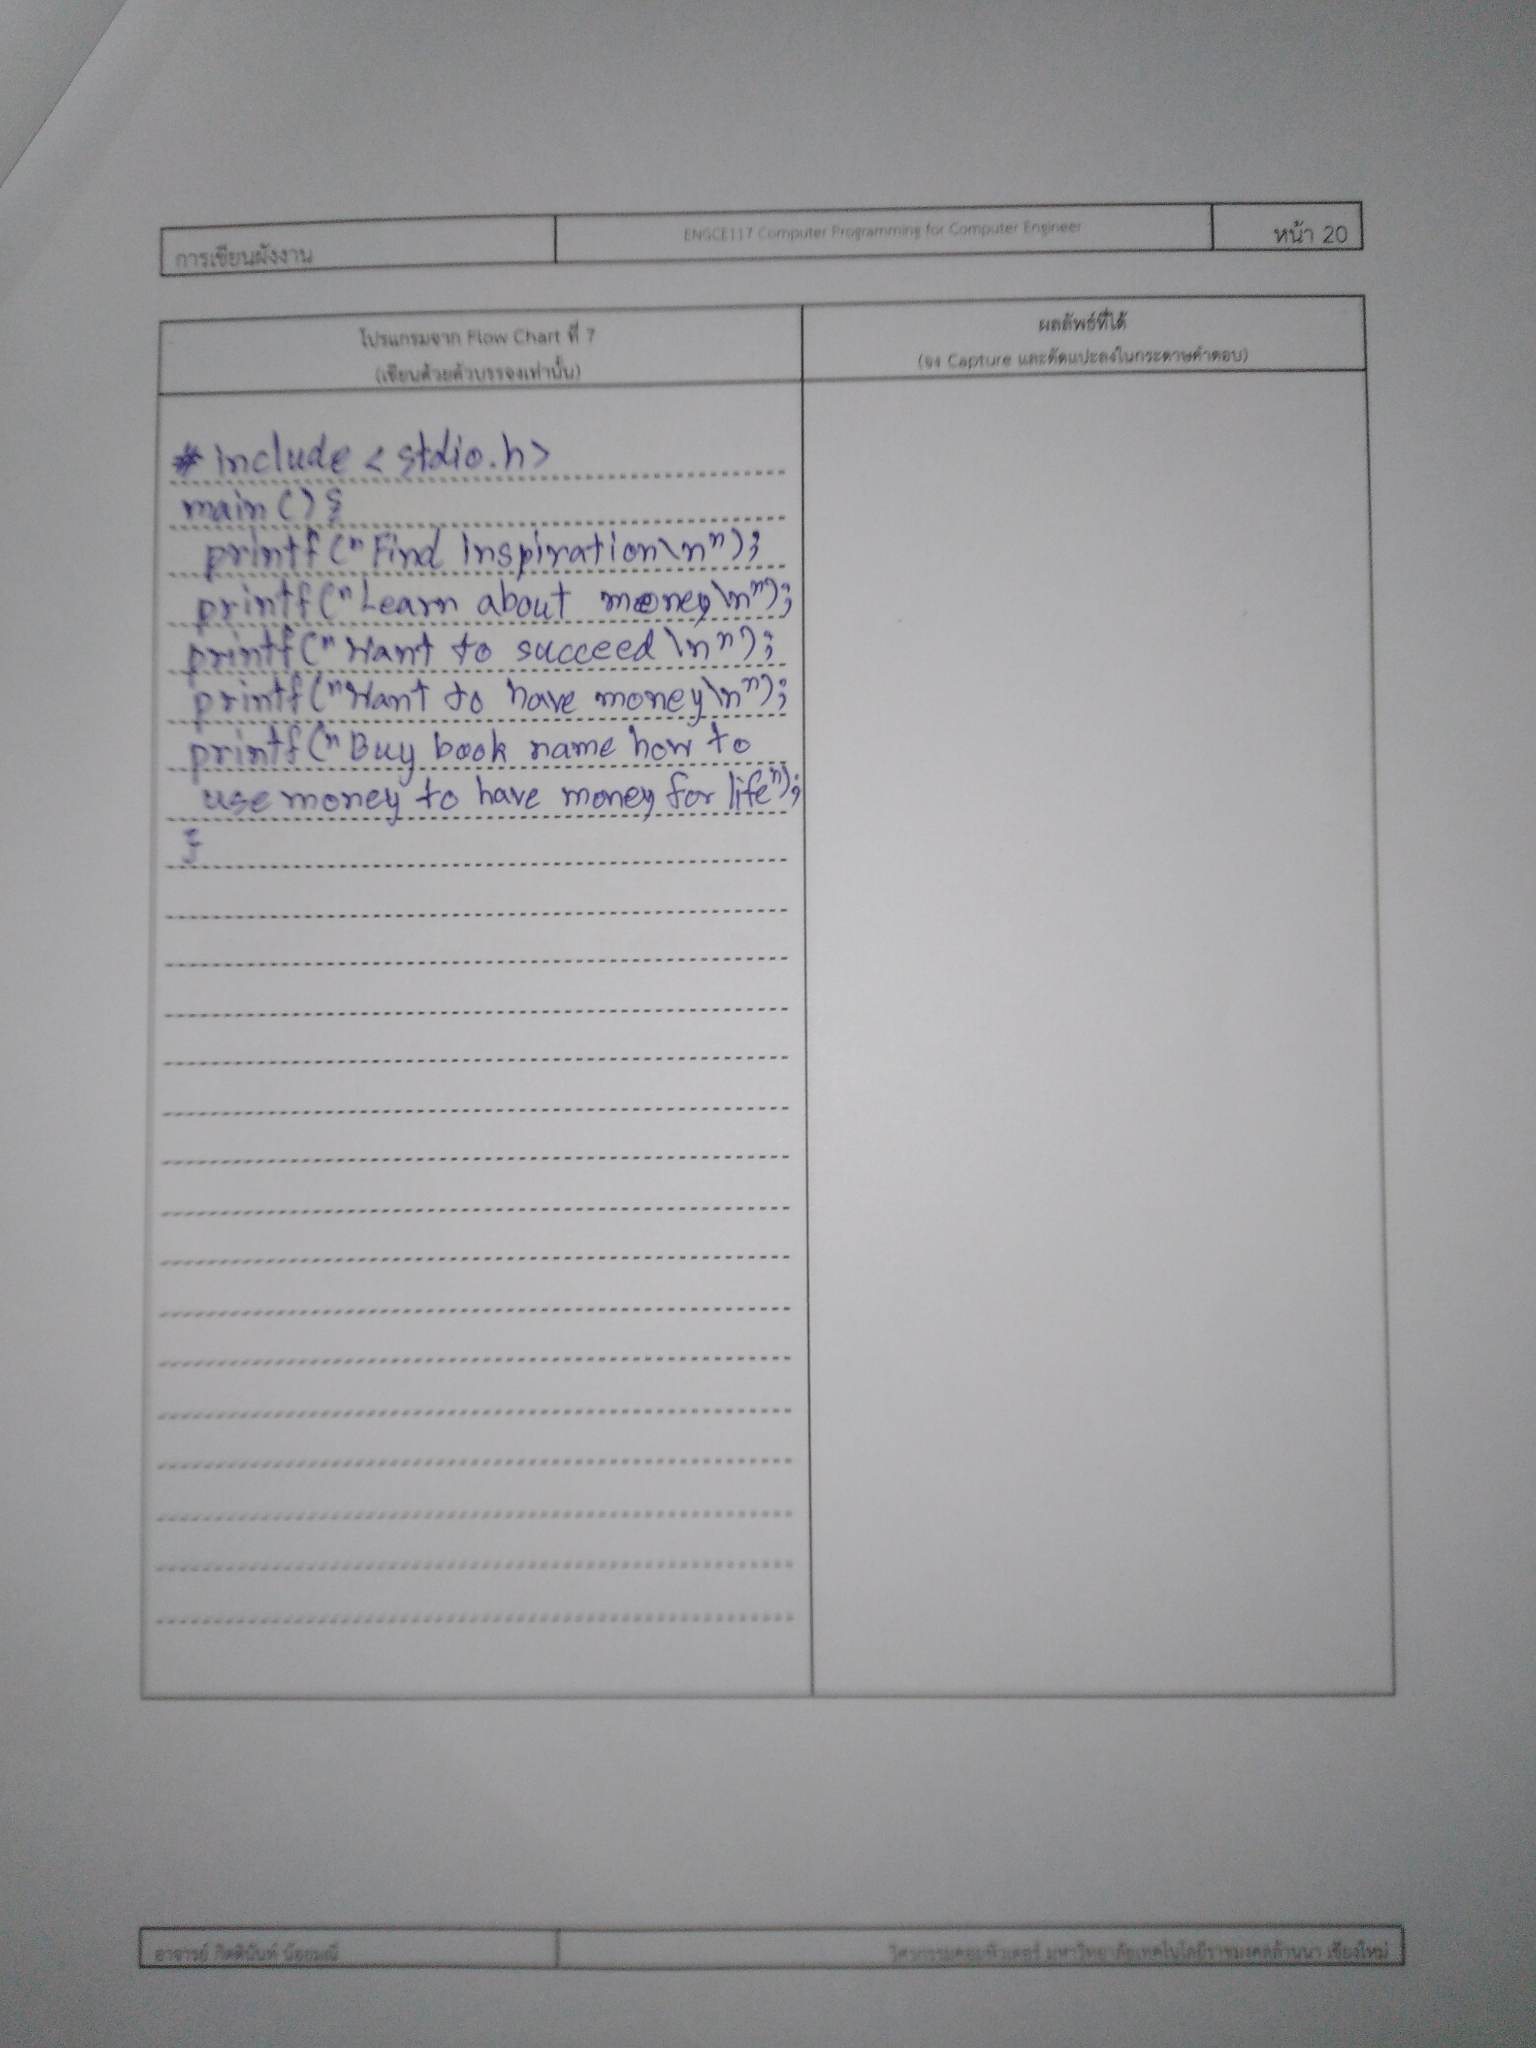 การเขียนผังงาน
ENGCE117 Computer Programming for Computer Engineer
หน้า 20
โปรแกรมจาก Flow Chart ที่ 7
(เขียนด้วยตัวบรรจงเท่านั้น)
ผลลัพธ์ที่ได้
(จง Capture และตัดแปะลงในกระดาษคำตอบ)
# include < stdio.h>
main() {
printf("Find inspiration\n");
printf("Learn about money\n");
printf("Want to succeed\n");
printf("Want to have money\n");
printf("Buy book name how to
use money to have money for life");
}
อาจารย์ กิตตินันท์ น้อยมณี
วิศวกรรมคอมพิวเตอร์ มหาวิทยาลัยเทคโนโลยีราชมงคลล้านนา เชียงใหม่